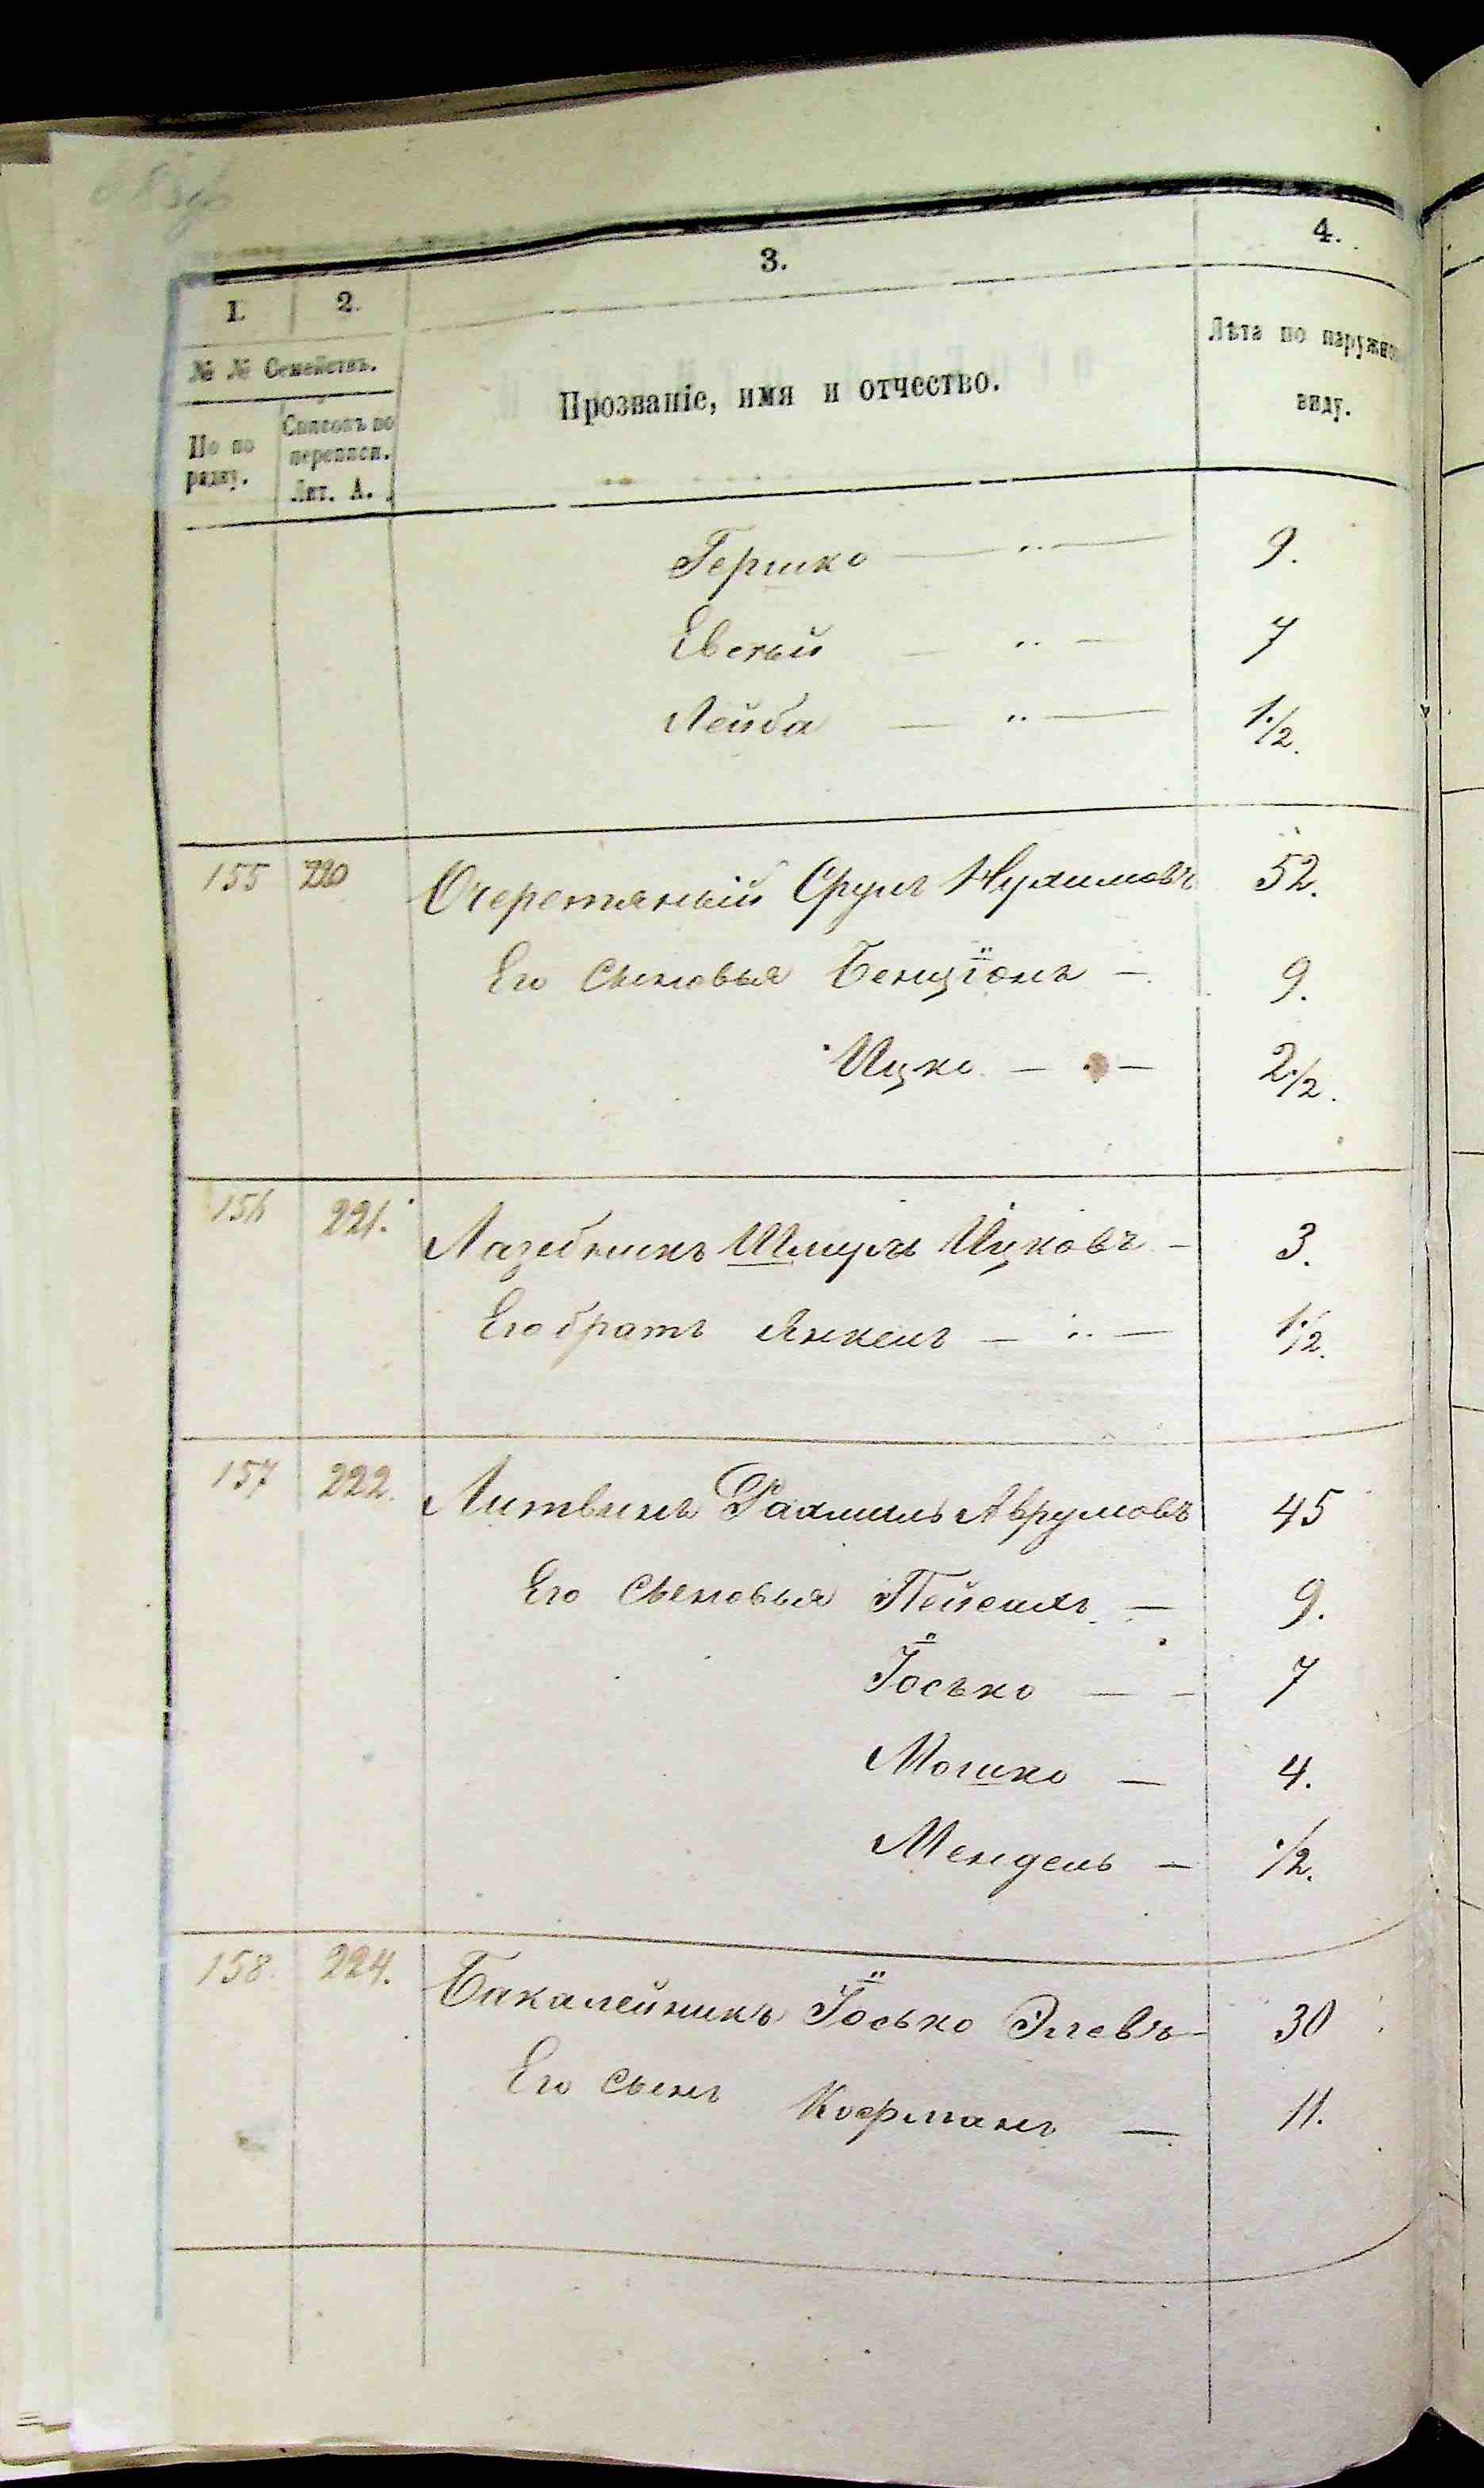 3.
4.
1.
2.
№ № Семействъ.
Прозваніе, имя и отчество.
Лѣта по наружно
виду.
По по
рядку.
Списокъ по
переписи.
Лит. А.
Гершко — „ — 9.
Евсѣй — „ — 7
Лейба — „ — 1 1/2.
155 220 Очеретяный Сруль Нухимовъ 52.
Его Сыновья Бенціонъ — 9.
Ицко — „ — 2 1/2.
156 221. Лазебникъ Шмуль Ицковъ — 3.
Его братъ Янкель — „ — 1 1/2.
157 222. Литвинъ Рахмиль Аврумовъ 45
Его Сыновья Пейсахъ — 9.
Іосько — — 7
Мошко — 4.
Мендель — 1/2.
158. 224. Бакалейникъ Іосько Элевъ — 30
Его сынъ Кофманъ — 11.